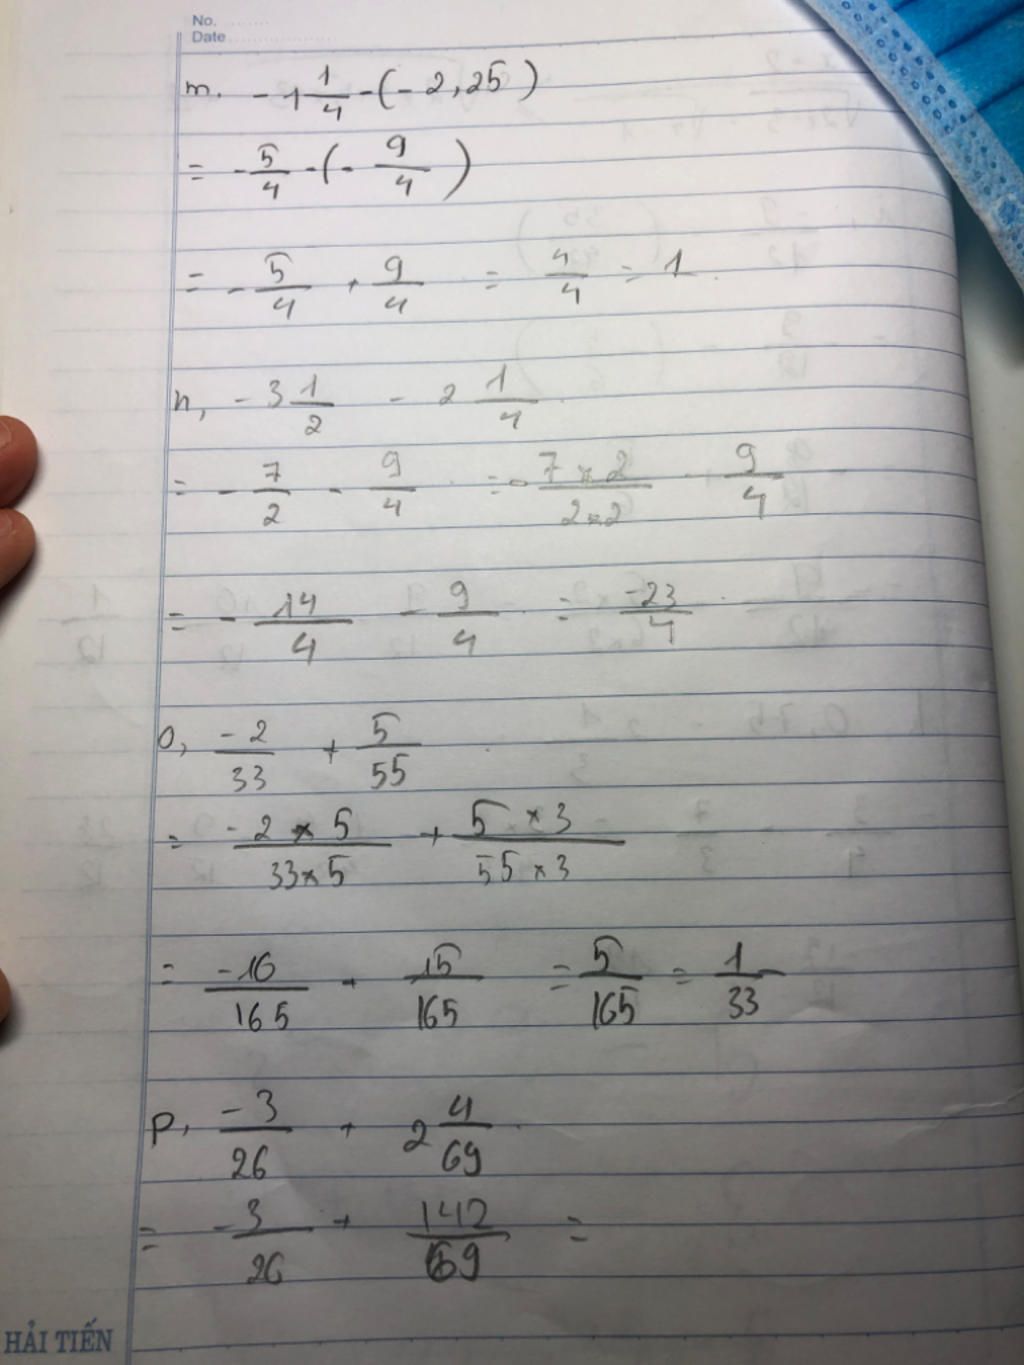 No. ........
Date ....................
m. -1 1/4 - (-2,25)
= -5/4 - (-9/4)
= -5/4 + 9/4 = 4/4 = 1
n, -3 1/2 - 2 1/4
= -7/2 - 9/4 = -7×2/2×2 - 9/4
= -14/4 - 9/4 = -23/4
o, -2/33 + 5/55
= -2×5/33×5 + 5×3/55×3
= -10/165 + 15/165 = 5/165 = 1/33
p, -3/26 + 2 4/69
= -3/26 + 142/69 =
HẢI TIẾN